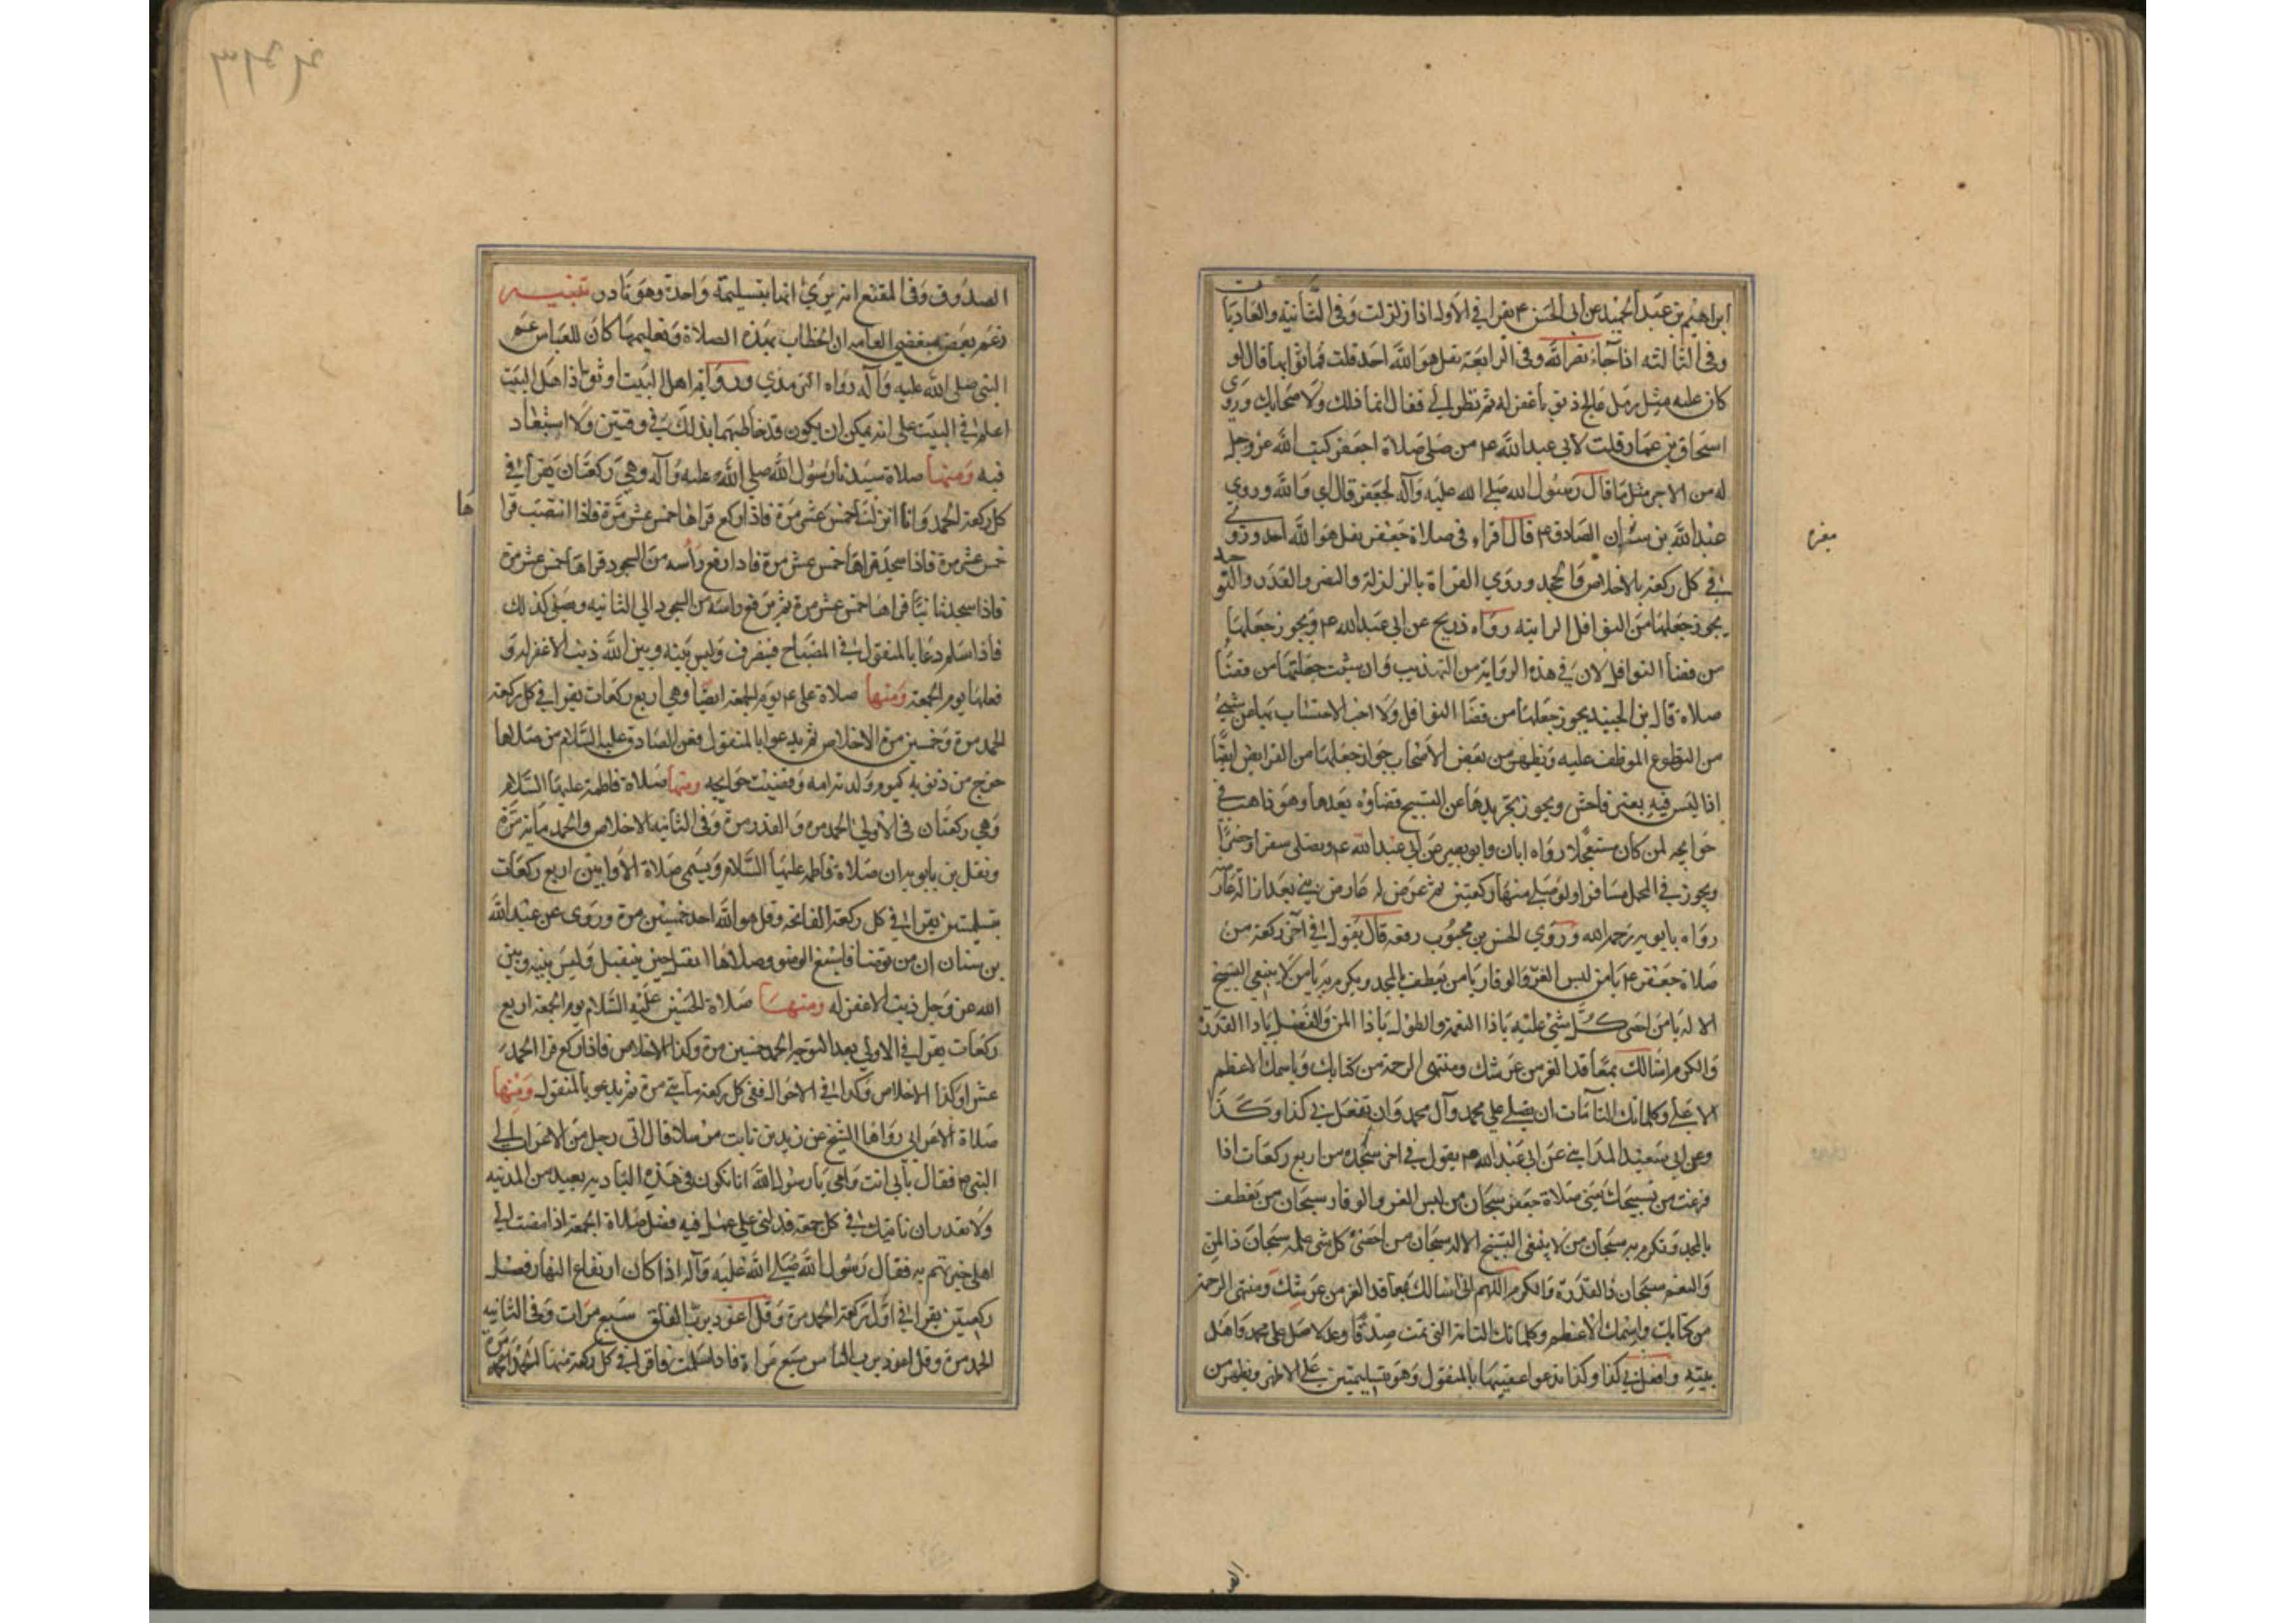 ابراهيم بن عبد الحميد عن ابي الحسن ع يقرا في الاولى اذا زلزلت وفي الثانيه والعاديات
وفي الثالثه اذا جاء نصر الله وفي الرابعة بقل هو الله احد قلت فما ثوابها قال لو
كان عليه مثل رمل عالج ذنوبا غفر له ثم نظر الي فقال انما ذلك لك ولاصحابك وروى
اسحاق بن عمار قلت لابي عبد الله ع من صلى صلاة جعفر كتب الله عز وجل
له من الاجر مثل ما قال رسول الله صلى الله عليه وآله لجعفر قال اي والله وروي
عبد الله بن عن الصادق ع قال اقراء في صلاة جعفر بقل هو الله احد وروي
في كل ركعة بالاخلاص والجحد وروي القراة بالزلزلة والنصر والقدر والتوحيد
يجوز جعلها من النوافل الراتبه رواه ذريح عن ابي عبد الله ع ويجوز جعلها
من قضأ النوافل لان في هذه الرواية من التهذيب وان شئت جعلتها من قضأ
صلاة قال بن الجنيد يجوز جعلها من قضا النوافل ولا احب الاحتساب بها من شيئ
من التطوع الموظف عليه ويظهر من بعض الاصحاب جواز جعلها من الفرايض ايضًا
اذا ليس فيه بعين فاحش ويجوز تجريدها عن التسبيح قضاؤه بعدها وهو ذاهب في
حوايجه لمن كان مستعجلا رواه ابان وابو بصير عن ابي عبد الله ع ويصلى سفرا وحضرًا
ويجوز في المحمل مسافرا ولو صلى منها ركعتين ثم عرض له عارض بني بعد ازالة عارضه
رواه بابويه رحمه الله وروي الحسن بن محبوب رفعه قال يقول في آخر ركعة من
صلاة جعفر ع يا من لبس العز والوقار يا من تعطف بالمجد وتكرم به يا من لا ينبغي التسبيح
الا له يا من احصى كل شئ علمه يا ذا النعمة والطول يا ذا المن والفضل يا ذا القدرة
والكرم اسالك بمعاقد العز من عرشك ومنتهى الرحمة من كتابك وباسمك الاعظم
الاعلى وكلماتك التآمات ان تصلي على محمد وآل محمد وان تفعل بي كذا وكذا
وعن ابي سعيد المدايني عن ابي عبد الله ع يقول في اخر سجده من اربع ركعات اذا
فرغت من تسبيحك من صلاة جعفر سبحان من لبس العز والوقار سبحان من تعطف
بالمجد وتكرم به سبحان من لا ينبغي التسبيح الا له سبحان من احصى كل شئ علمه سبحان ذا المن
والنعم سبحان ذا القدرة والكرم اللهم اني اسالك بمعاقد العز من عرشك ومنتهى الرحمة
من كتابك واسمك الاعظم وكلماتك التامة التي تمت صدقًا وعدلا صل على محمد واهل
بيته وافعل بي كذا وكذا يدعو عقيبها بالمنقول وهو بتسليمتين على الاظهر ويظهر من
الصدوق وفي المقنع انه يروي انها بتسليمة واحدة وهو نادر تنبيه
زعم بعض مبغضي العامه ان الخطاب بهذه الصلاة وتعليمها كان للعباس عم
النبي صلى الله عليه وآله رواه الترمذي ورواية اهل البيت اوثق اذ اهل البيت
اعلم في البيت على انه يمكن ان يكون قد خاطبهما بذلك في وقتين ولا استبعاد
فيه ومنها صلاة سيدنا رسول الله صلى الله عليه وآله وهي ركعتان يقرا في
كل ركعة الحمد وانا انزلناه خمس عشر مرة فاذا ركع قراها خمس عشر مرة فاذا انتصب قرا
ها
خمس عشر مرة فاذا سجد قراها خمس عشر مرة فاذا رفع رأسه من السجود قراها خمس عشر مرة
فاذا سجد ثانيًا قراها خمس عشر مرة ثم يرفع راسه من السجود الى الثانيه وصلى كذلك
فاذا سلم دعا بالمنقول في المصباح فينصرف وليس بينه وبين الله ذنب الا غفر له و
فعلها يوم الجمعة ومنها صلاة علي ع يوم الجمعة ايضًا وهي اربع ركعات يقرا في كل ركعة
الحمد مرة وخمسين مرة الاخلاص ثم يدعو بالمنقول فعن الصادق عليه السلام من صلاها
خرج من ذنوبه كيوم ولدته امه وقضيت حوايجه ومنها صلاة فاطمة عليها السلام
وهي ركعتان في الاولى الحمد مرة والقدر مرة وفي الثانيه الاخلاص والحمد مأية مرة
ونقل بن بابويه ان صلاة فاطمه عليها السلام ويسمى صلاة الأوابين اربع ركعات
بتسليمتين يقرا في كل ركعة الفاتحه وقل هو الله احد خمسين مرة وروى عن عبد الله
بن سنان ان من توضأ فاسبغ الوضو وصلاها انفتل حين ينفتل وليس بينه وبين
الله عز وجل ذنب الا غفر له ومنها صلاة الحسين عليه السلام يوم الجمعة اربع
ركعات يقرا في الاولى بعد التوجه الحمد خمسين مرة وكذا الاخلاص فاذا ركع قرا الحمد
عشرا وكذا الاخلاص وكذا في الاحوال ففي كل ركعة مأتي مرة ثم يدعو بالمنقول ومنها
صلاة الاعرابي رواها الشيخ عن زيد بن ثابت مرسلا قال اتى رجل من الاعراب الى
النبي ص فقال بأبي انت وامي يا رسول الله انا نكون في هذه البادية بعيد من المدينه
ولا نقدر ان ناتيك في كل جمعة فدلني على عمل فيه فضل صلاة الجمعة اذا مضيت الى
اهلي خبرتهم به فقال رسول الله صلى الله عليه وآله اذا كان ارتفاع النهار فصل
ركعتين يقرا في اول ركعة الحمد مرة وقل اعوذ برب الفلق سبع مرات وفي الثانيه
الحمد مرة وقل اعوذ برب الناس سبع مراة فاذا سلمت فاقرا